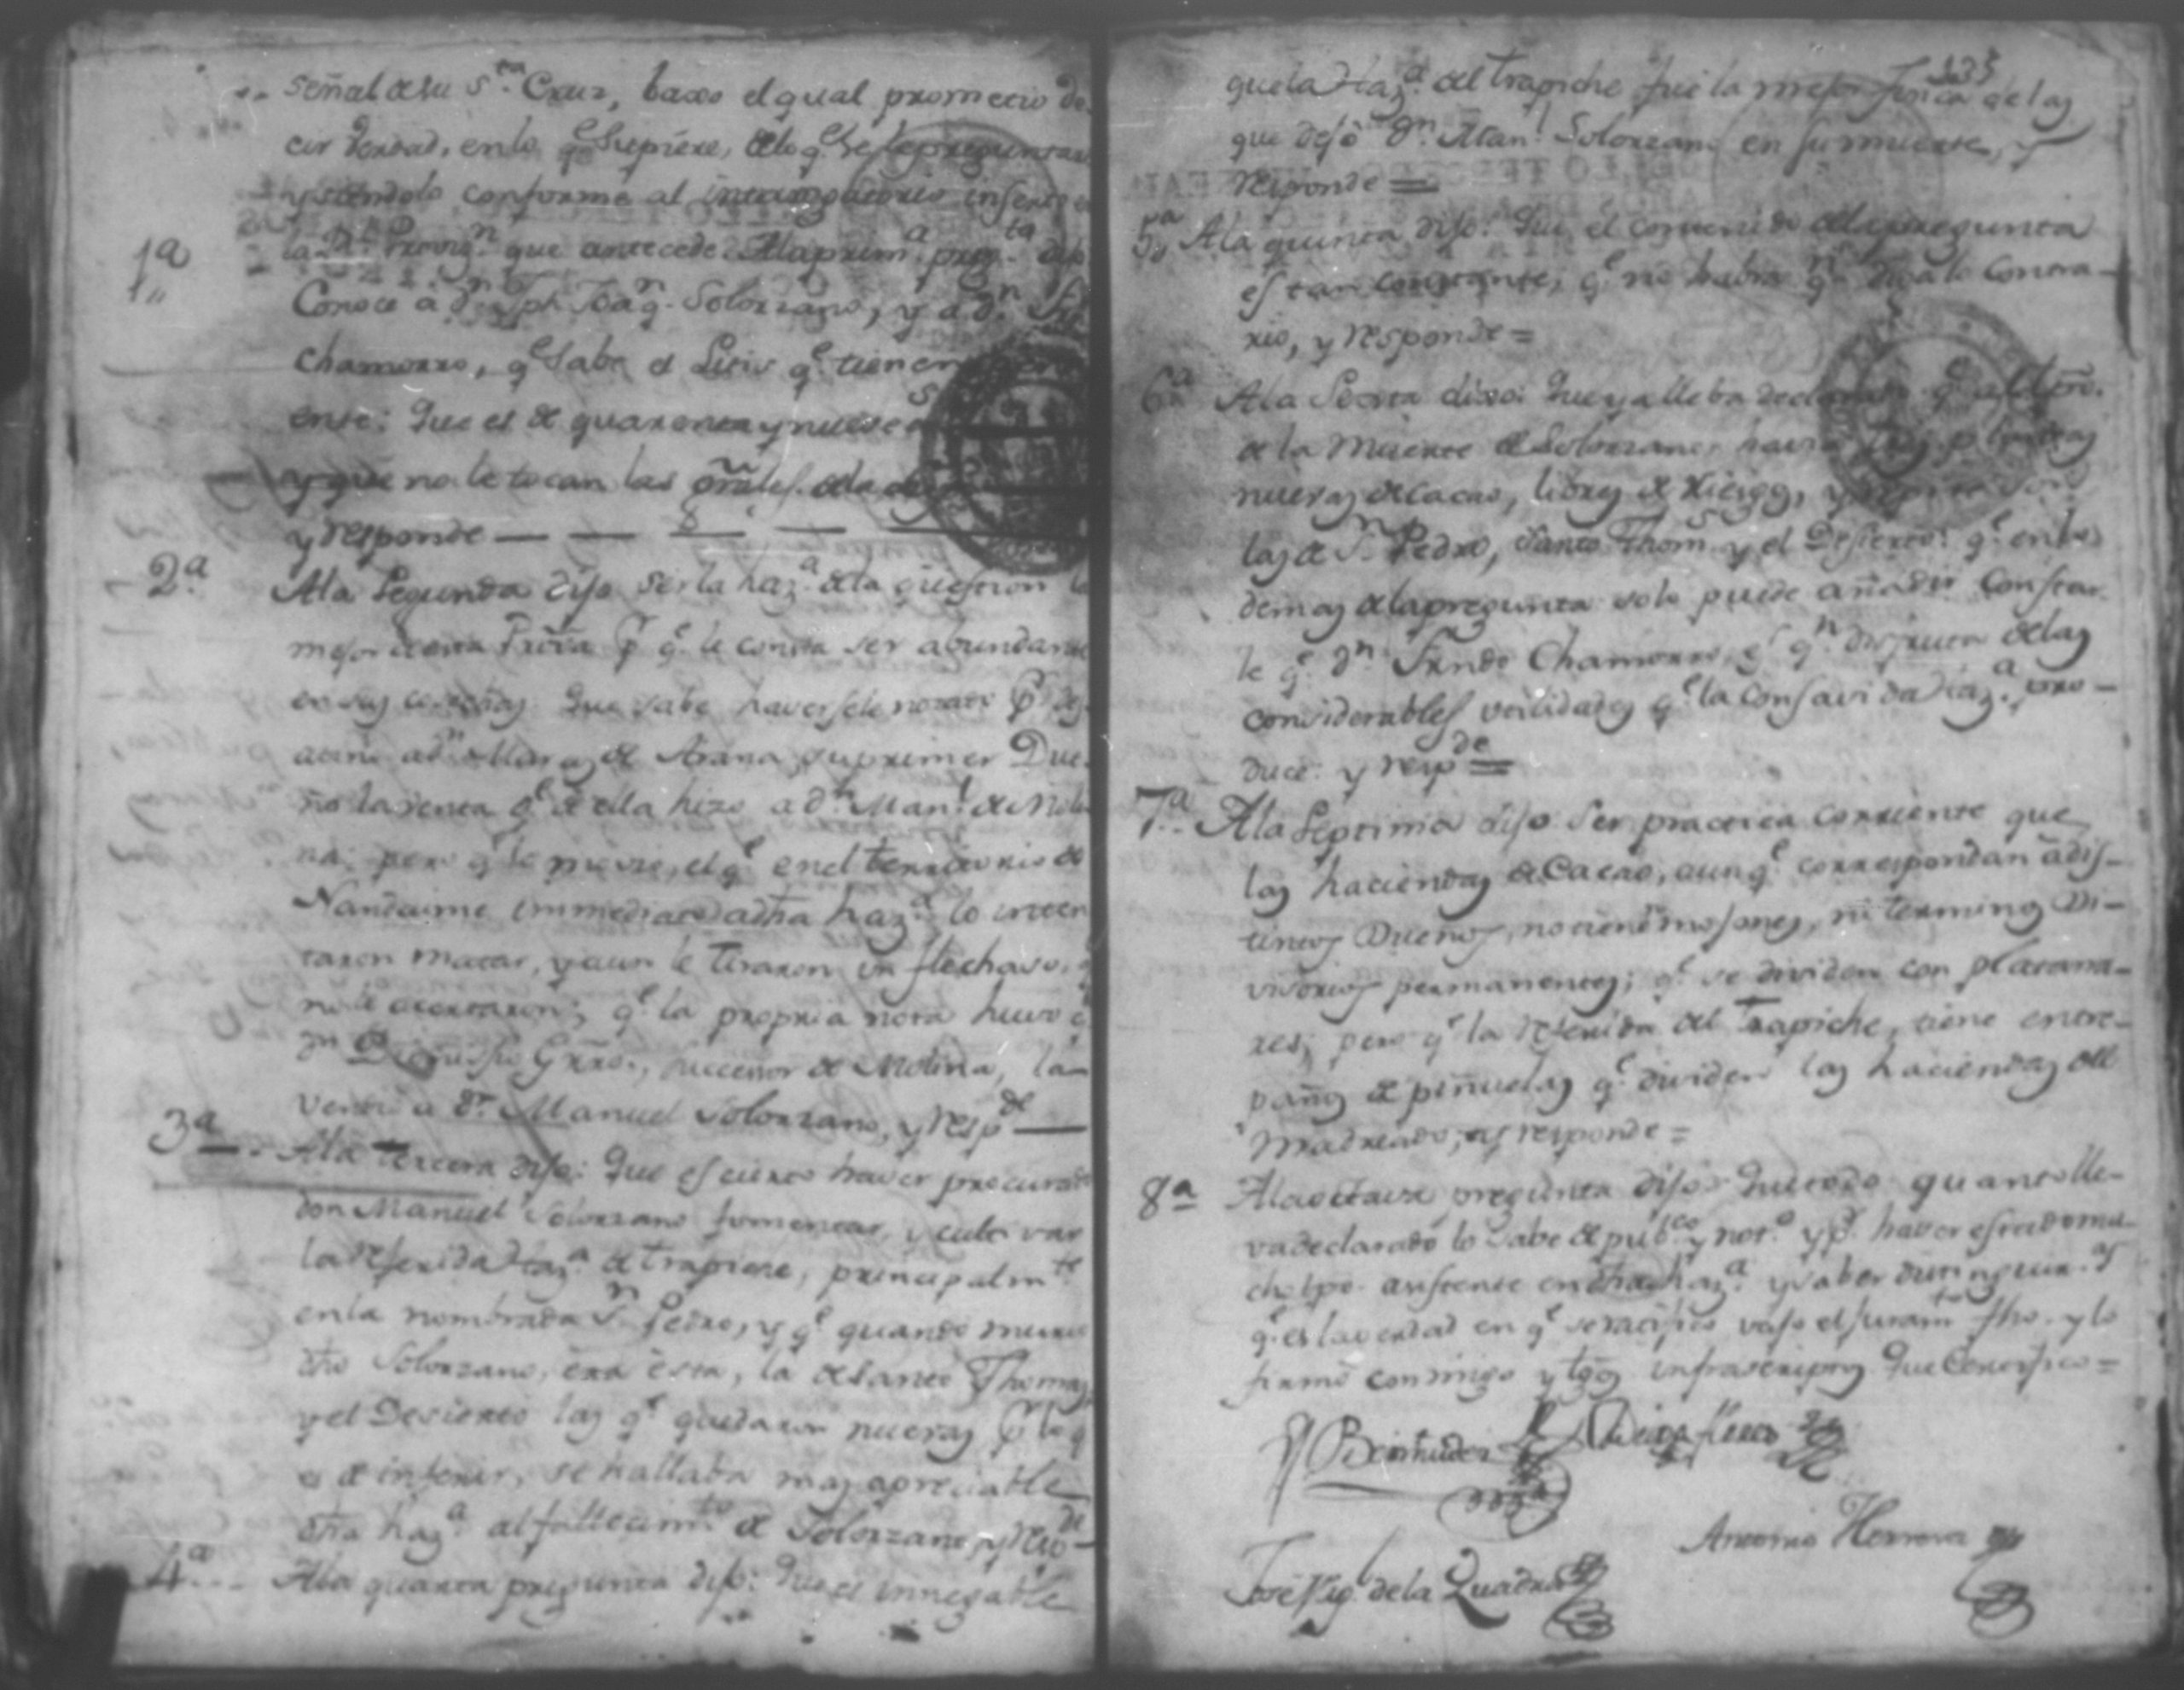 señal de su S.ta Cruz, baxo el qual prometio de-
cir Verdad, en lo q.e Supiere, de lo q.e Se le preguntare
y siendolo conforme al interrogatorio inserto en
la R.l Proviz.n que antecede. A la prim.a preg.ta dijo
1a Conoce a d.n Jph Joaq.n Solorzano, y a d.n
Chamorro, q.e Sabe el Litis q.e tienen
ente: Que es de quarenta y nueve
y que no le tocan las grãles. de la
y responde
2.a A la Segunda dijo ser la haz.a de la question la
mejor de esta Prov.a p.r q.e le consta ser abundante
en sus cosechas que sabe haversele notado p.r
a d.n Marcos de Arana, su primer Due-
ño la venta q.e de ella hizo a d.n Man.l de Moli-
na; pero q.e le movio, el q.e en el territorio de
Nandaime immediato a dha haz.a lo inten-
taron matar, y aun le tiraron un flechaso, q
no le acertaron; q.e la propria nota huvo
d.n Dionisio Grro., succesor de Molina, la
vendio a d.n Manuel Solorzano, y resp.de
3a A la tercera dijo: Que es cierto haver procurado
don Manuel Solorzano fomentar, y cultivar
la referida Haz.a de trapiche, principalm.te
en la nombrada S.n Pedro, y q.e quando murio
dho Solorzano, era esta, la de Santo Thomas,
y el Decierto las q.e quedaron nuevas p.r lo q
es de inferir, se hallaba mas apreciable
dha haz.a al fallecim.to de Solorzano, y resp.de
4a A la quarta pregunta dijo: Que es innegable
135
que la Haz.a del trapiche fue la mejor finca de las
que dejó d.n Man.l Solorzano en su muerte, y
responde =
5a A la quinta dijo: Que el contenido de la pregunta
es tan constante, q.e no habra q.n diga lo Contra-
rio, y responde =
6a A la Sexta dixo: Que ya lleba declarado q.e al tpo.
de la Muerte de Solorzano, havia
nuevas de Cacao, libres de riesgo, y
las de S.n Pedro, Santo Thom.s y el Desierto: q.e en lo
demas de la pregunta solo puede añadir Constar
le q.e d.n Frndo Chamorro, es q.n disfruta de las
considerables utilidades q.e la consavida Haz.a pro-
duce: y resp.de =
7a A la Septima dijo Ser practica corriente que
las haciendas de Cacao, aunq.e correspondan a dis-
tintos Dueños, no tienen mojones, ni terminos Di-
visorios permanentes; q.e se dividen con platana-
res; pero q.e la referida del Trapiche, tiene entre-
paños de piñuelas q.e dividen las haciendas del
Madreado, y responde =
8a A la octava pregunta dijo: Que todo quanto lle-
va declarado lo Sabe de pub.co y not.o y p.r haver estado mu-
cho tpo. asistente en dha haz.a y saber distinguir. Y
q.e es la verdad en q.e se ratifico vajo el juram.to fho. y lo
firmó conmigo y tgõs infrascriptos Que Certifico =
Bermudez
José Vig.l de la Quadra
Antonio Herrera